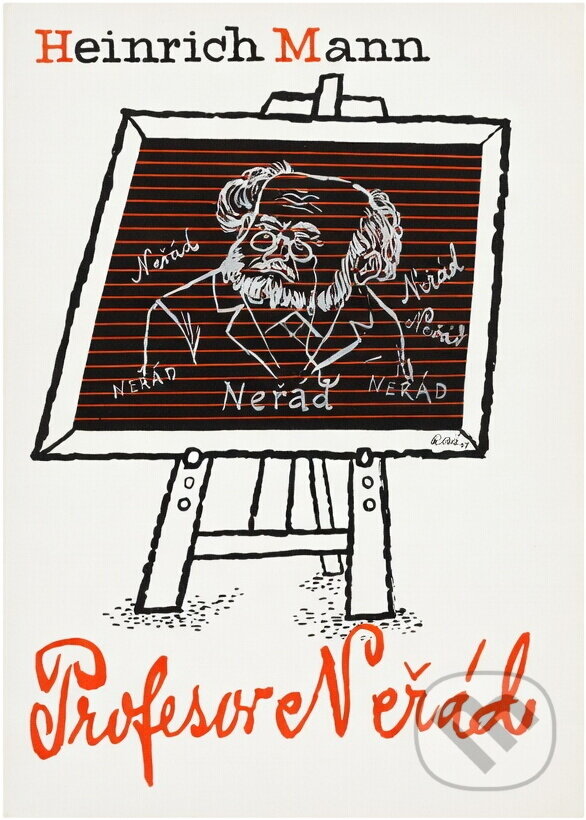 Heinrich Mann
Neřád
Neřád
Neřád
NEŘÁD
Neřád
NEŘÁD
Profesor Neřád